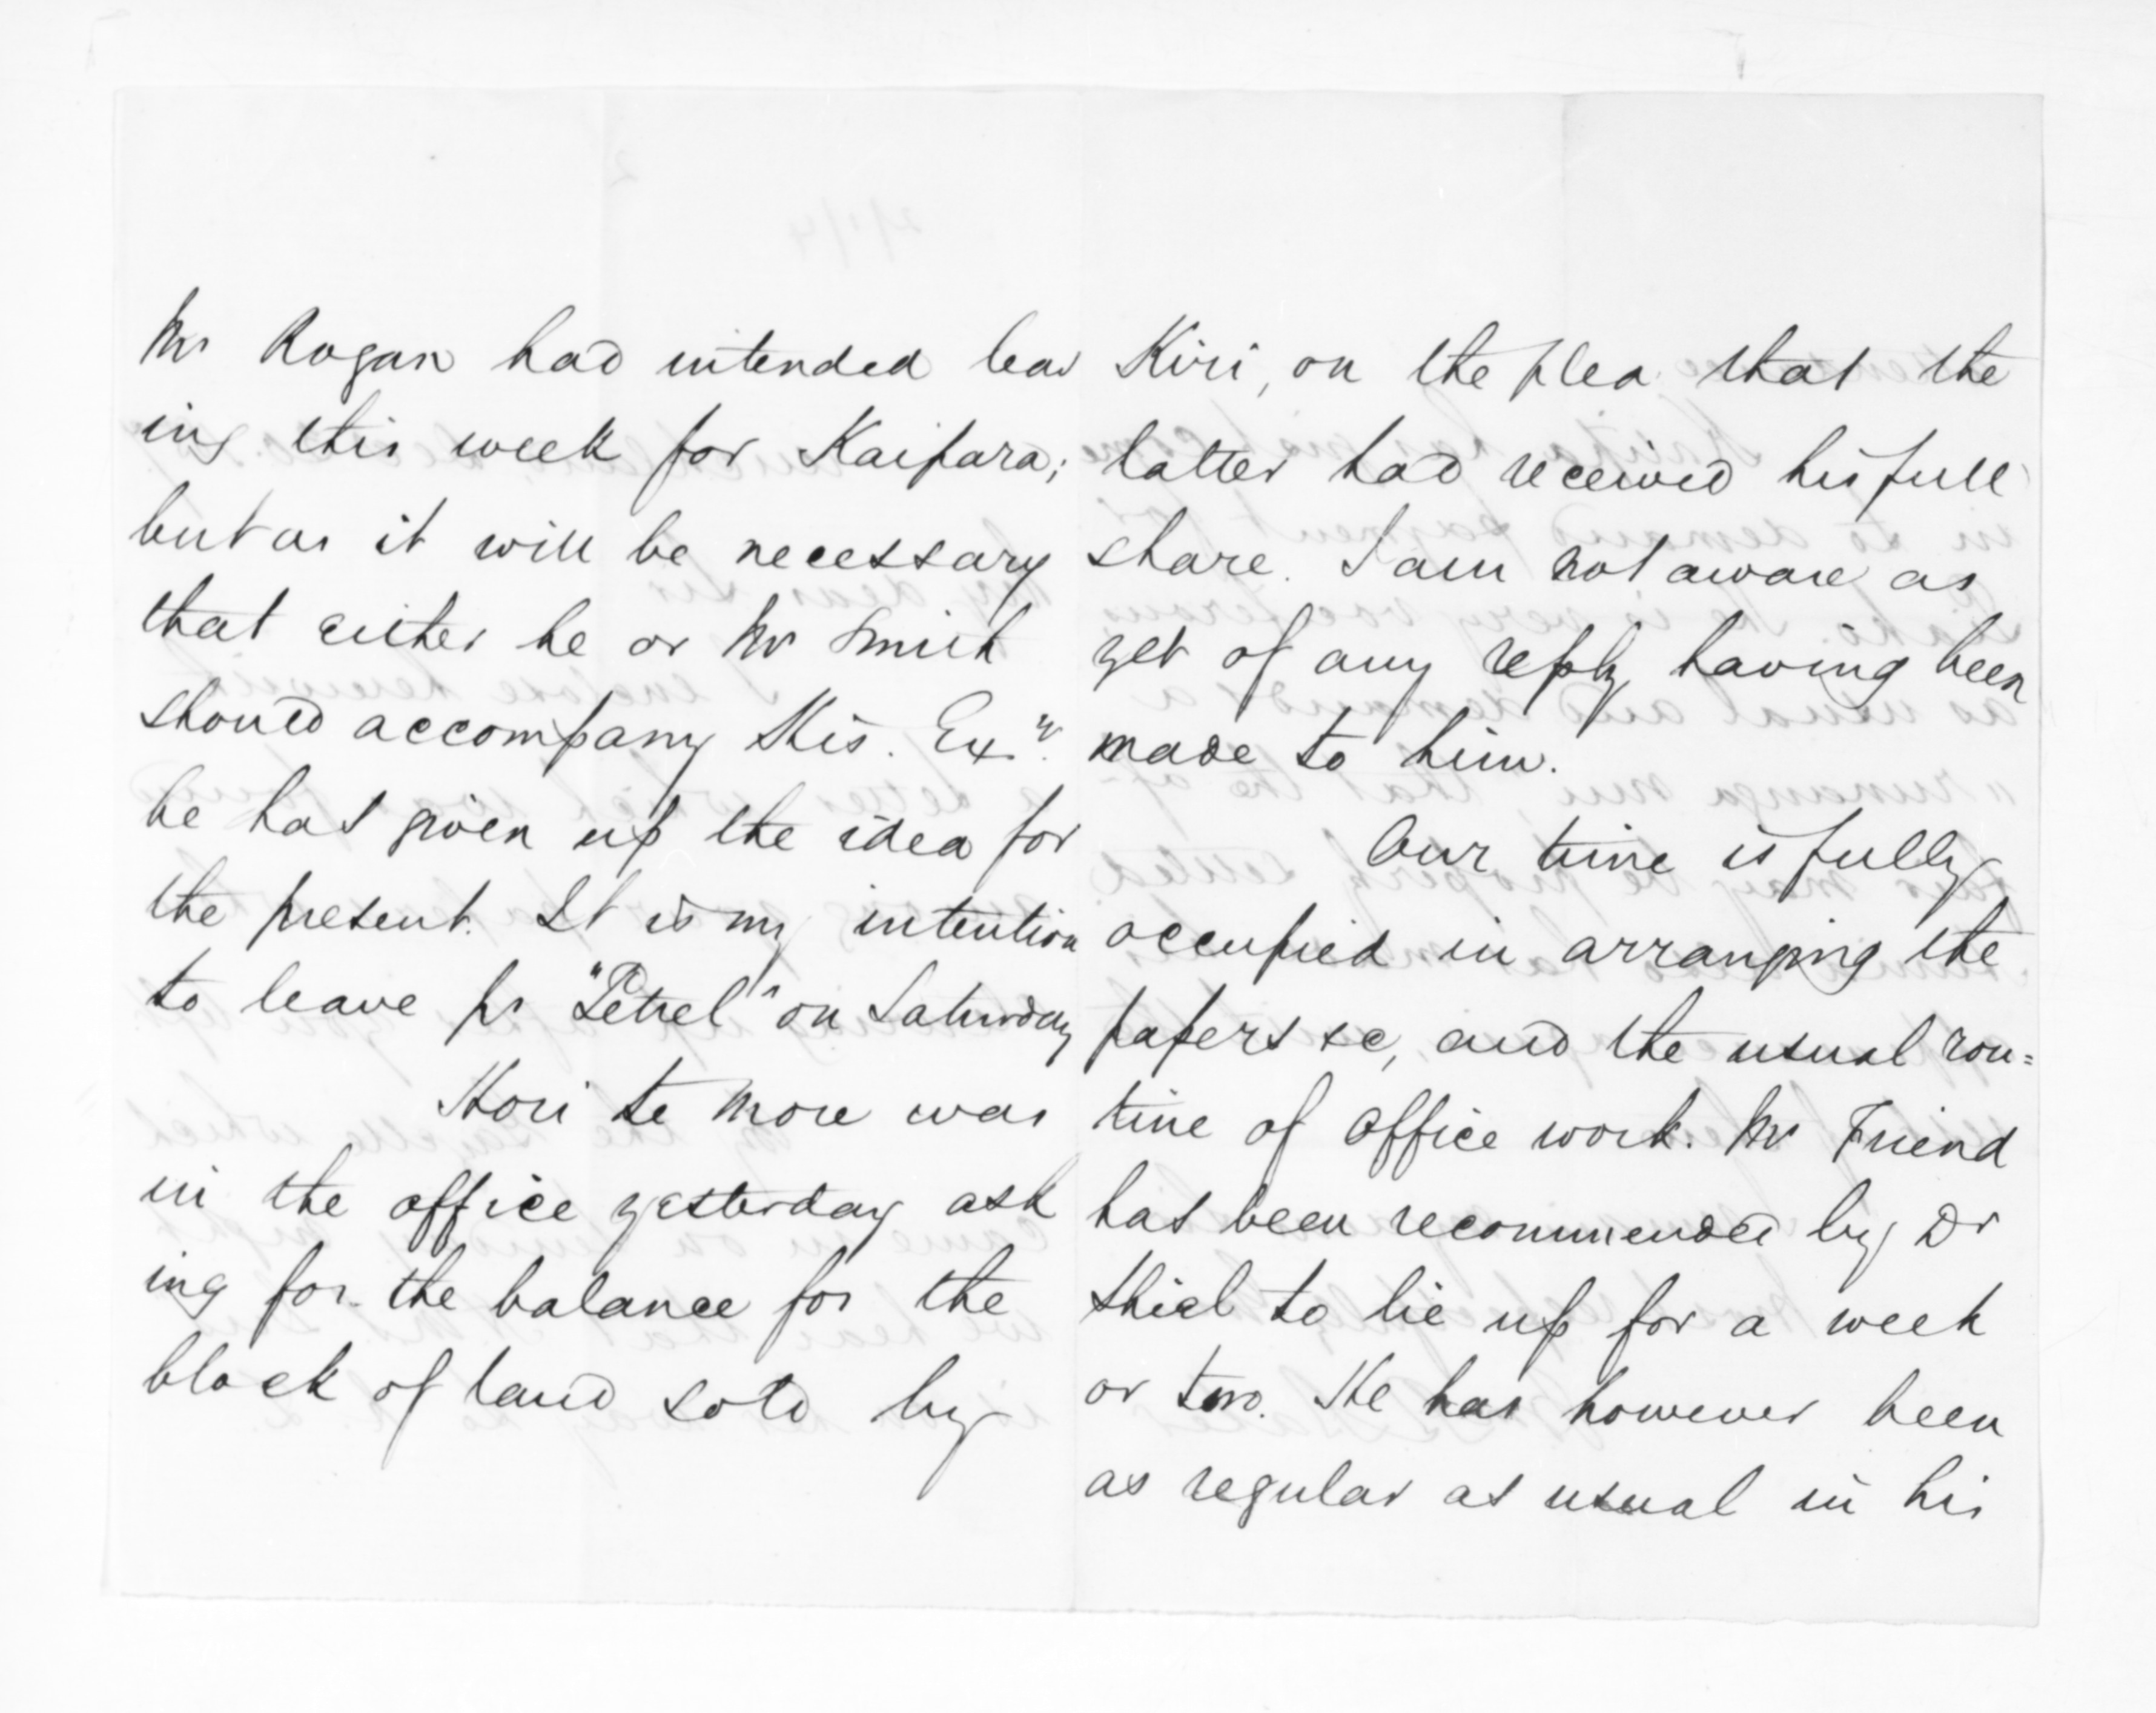 Mr Rogan had intended leav
ing this week for Kaipara;
but as it will be necessary
that either he or Mr Smith
should accompany His. Exy.
he has given up the idea for
the present. It is my intention
to leave pr "Petrel" on Saturday
Hori te More was
in the office yesterday ask
ing for the balance for the
block of land sold by
Kiri, on the plea that the
latter had received his full
share. I am not aware as
yet of any reply having been
made to him.
Our time is fully
occupied in arranging the
papers &c, and the usual rou=
tine of office work. Mr Friend
has been recommended by Dr
Shiel to lie up for a week
or two. He has however been
as regular as usual in his